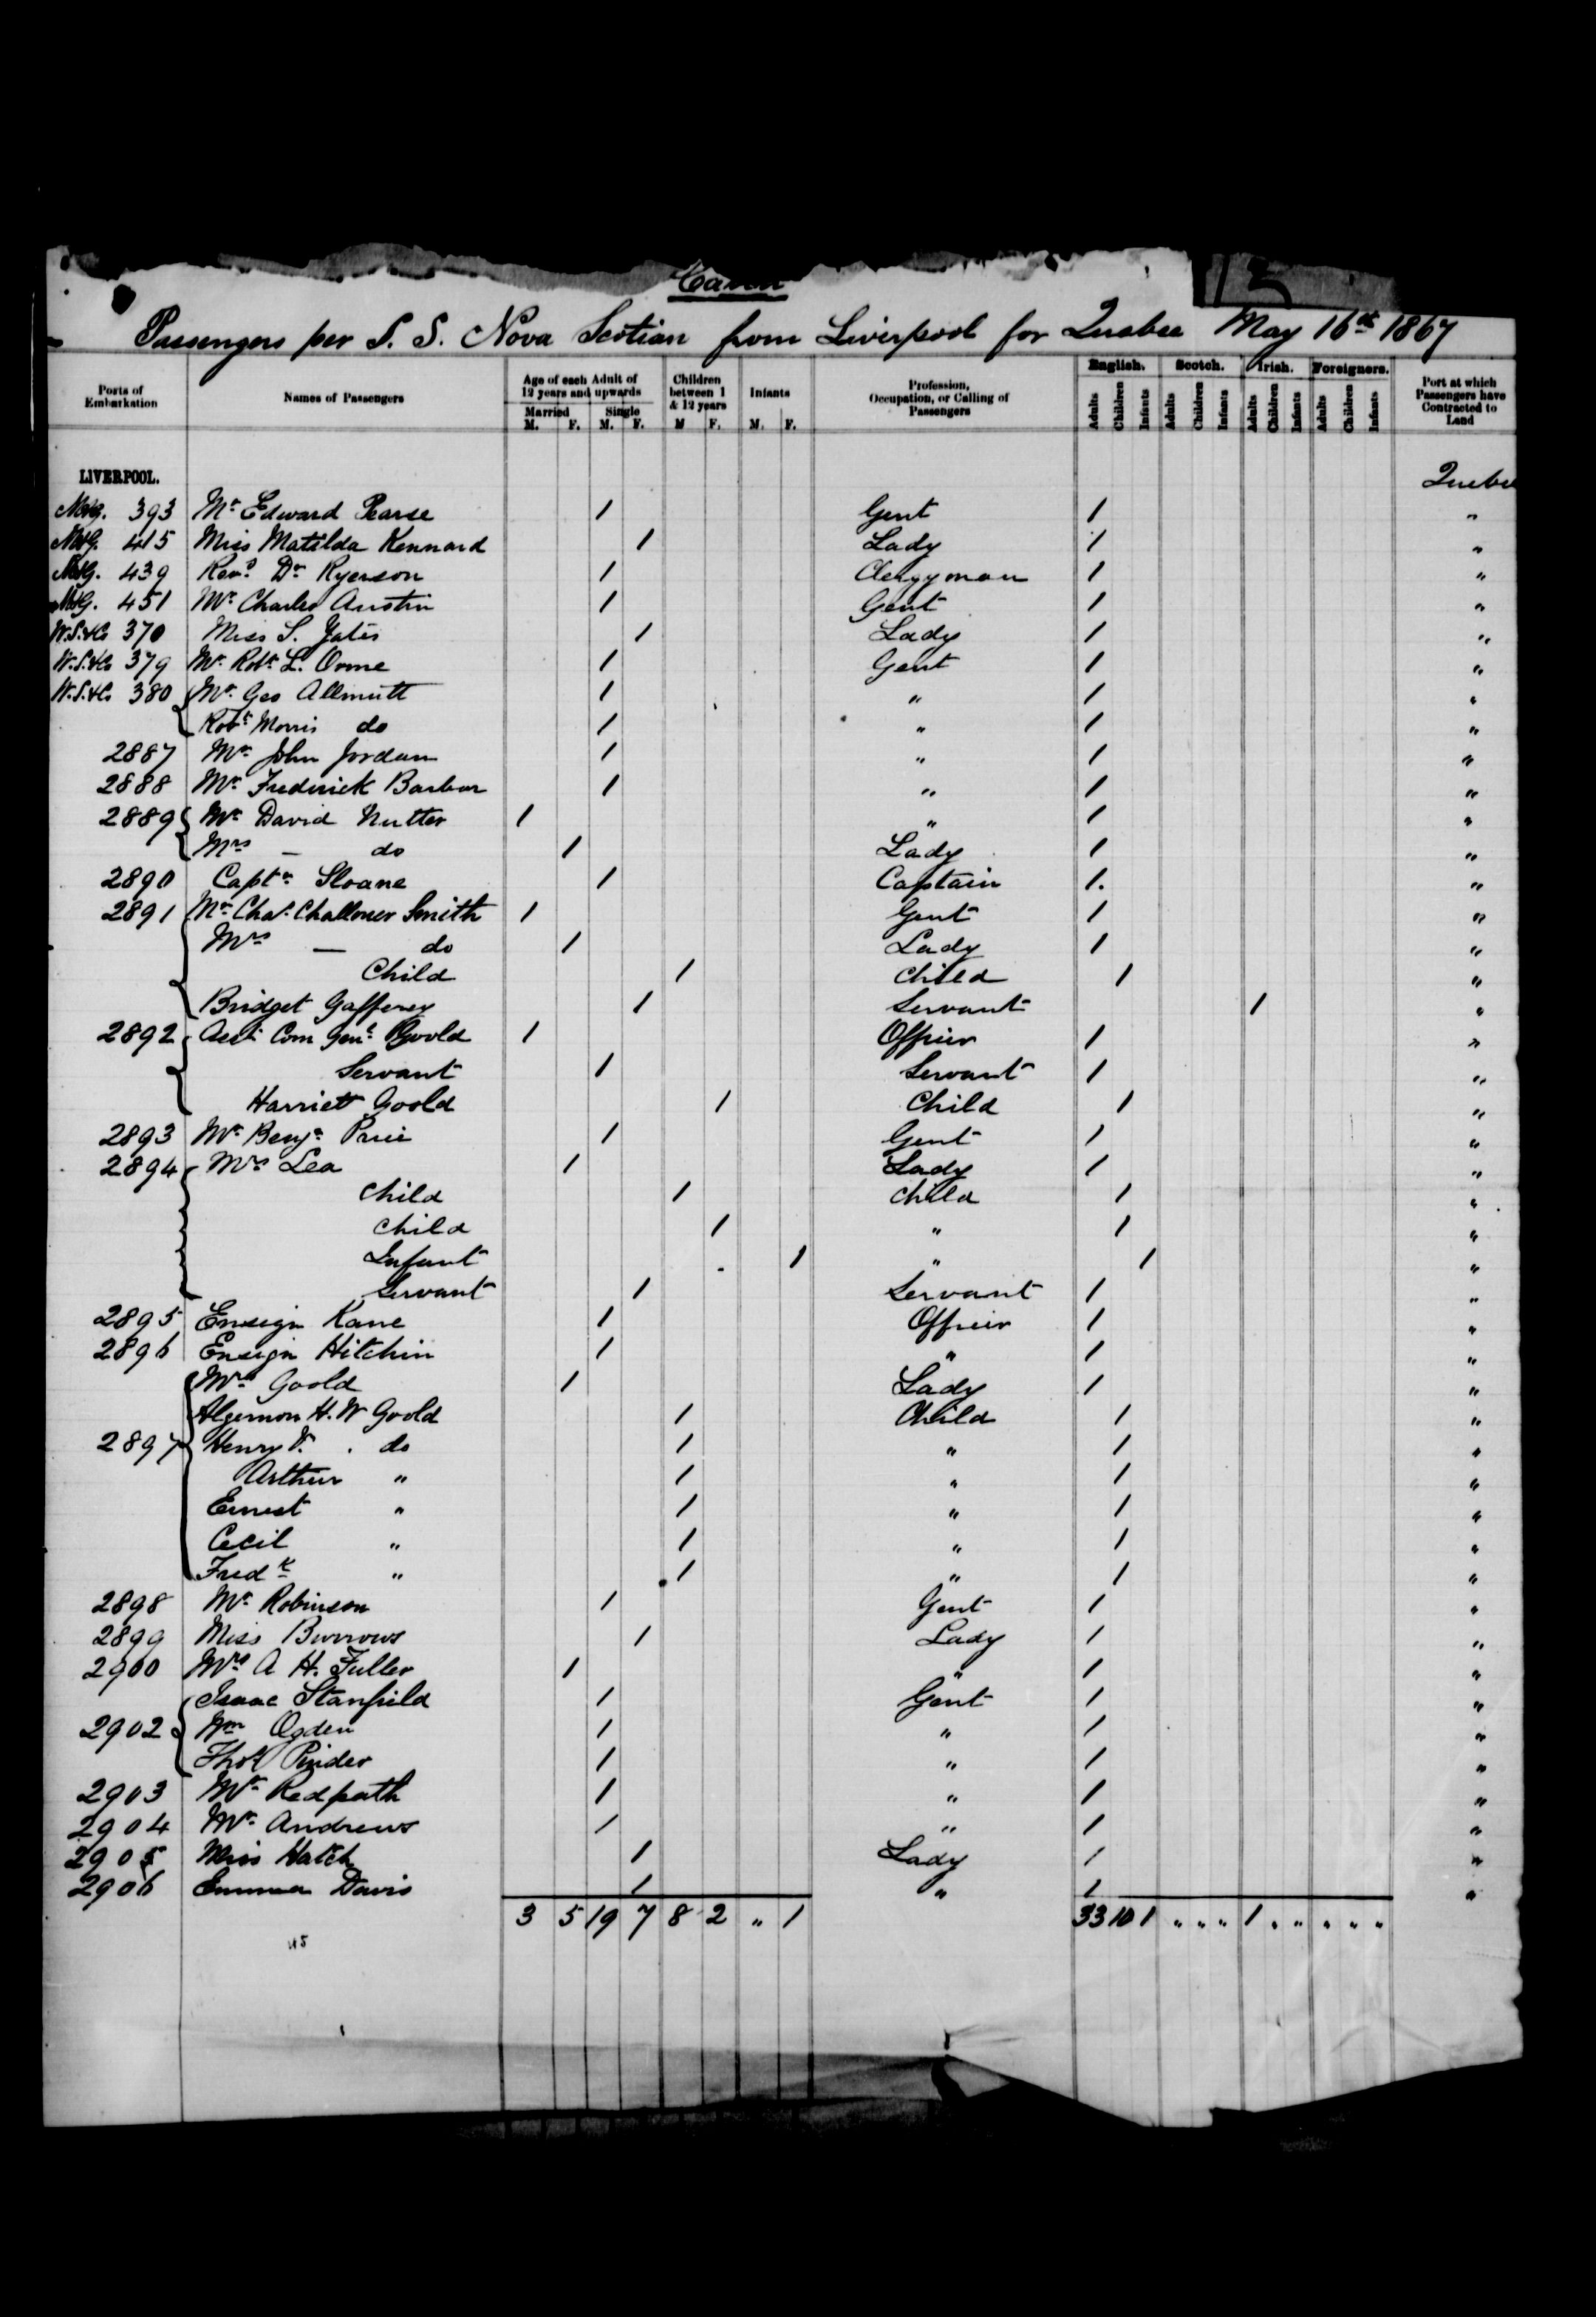 Cabin
Passengers per S. S. Nova Scotian from Liverpool for Quebec May 16th 1867
Ports of Embarkation
Names of Passengers
Age of each Adult of 12 years and upwards
Married M. F.
Single M. F.
Children between 1 & 12 years M F.
Infants M. F.
Profession, Occupation, or Calling of Passengers
English. Adults Children Infants
Scotch. Adults Children Infants
Irish. Adults Children Infants
Foreigners. Adults Children Infants
Port at which Passengers have Contracted to Land
LIVERPOOL. Quebec
393 Mr Edward Pearse 1 Gent 1 "
415 Miss Matilda Kennard 1 Lady 1 "
439 Revd Dr Ryerson 1 Clergyman 1 "
451 Mr Charles Austin 1 Gent 1 "
W.S.&Co 370 Miss S. Yates 1 Lady 1 "
W.S.&Co 379 Mr Robt L. Orme 1 Gent 1 "
W.S.&Co 380 Mr Geo Allmutt 1 " 1 "
Robt Morris do 1 " 1 "
2887 Mr John Jordan 1 " 1 "
2888 Mr Frederick Barbor 1 " 1 "
2889 Mr David Nutter 1 " 1 "
Mrs — do 1 Lady 1 "
2890 Captn Sloane 1 Captain 1. "
2891 Mr Chas. Challoner Smith 1 Gent 1 "
Mrs — do 1 Lady 1 "
Child 1 Child 1 "
Bridget Gaffeney 1 Servant 1 "
2892 Asst Com Genl Goold 1 Officer 1 "
Servant 1 Servant 1 "
Harriett Goold 1 Child 1 "
2893 Mr Benjn Price 1 Gent 1 "
2894 Mrs Lea 1 Lady 1 "
Child 1 Child 1 "
Child 1 " 1 "
Infant 1 " 1 "
Servant 1 Servant 1 "
2895 Ensign Kane 1 Officer 1 "
2896 Ensign Hitchin 1 " 1 "
Mrs Goold 1 Lady 1 "
Algernon H. W Goold 1 Child 1 "
2897 Henry V. do 1 " 1 "
Arthur " 1 " 1 "
Ernest " 1 " 1 "
Cecil " 1 " 1 "
Fredk " 1 " 1 "
2898 Mr Robinson 1 Gent 1 "
2899 Miss Burrows 1 Lady 1 "
2900 Mrs A H. Fuller 1 " 1 "
Isaac Stanfield 1 Gent 1 "
2902 Wm Ogden 1 " 1 "
Thos Pinder 1 " 1 "
2903 Mr Redpath 1 " 1 "
2904 Mr Andrews 1 " 1 "
2905 Miss Hatch 1 Lady 1 "
2906 Emma Davis 1 " 1 "
3 5 19 7 8 2 " 1 33 10 1 " " " 1 " " " " "
45